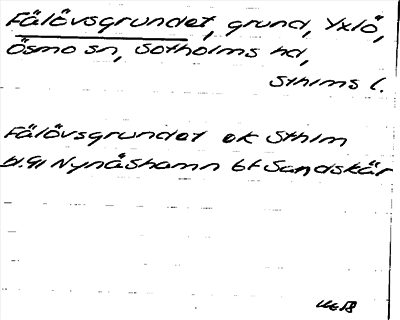 Fälövsgrundet, grund, Yxlö,
Ösmo sn, Sotholms hd,
Sthlms l.
Fälövsgrundet ek Sthlm
bl. 91 Nynäshamn bt Sandskär